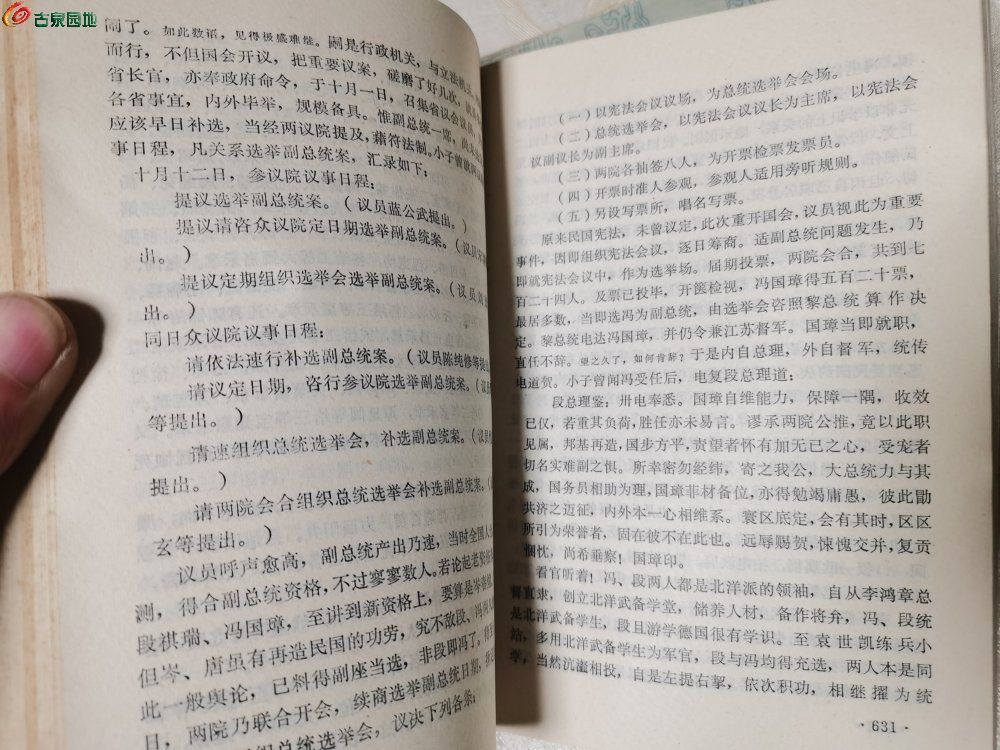 古泉园地
闹了。如此数语，见得极盛难继。阁是行政机关，与立法机关
而行，不但国会开议，把重要议案，磋磨了好几次，
省长官，亦奉政府命令，于十月一日，召集省议会议员
各省事宜，内外毕举，规模备具。惟副总统一席，尚
应该早日补选，当经两议院提及，藉符法制。小子曾
事日程，凡关系选举副总统案，汇录如下：
十月十二日，参议院议事日程：
提议选举副总统案。（议员蓝公武提出。）
提议请咨众议院定日期选举副总统案。（议员
出。）
提议定期组织选举会选举副总统案。（议员
出。）
同日众议院议事日程：
请依法速行补选副总统案。（议员陈纯修等提
请议定日期，咨行参议院选举副总统案。（议
等提出。）
请速组织总统选举会，补选副总统案。（议员
提出。）
请两院会合组织总统选举会补选副总统案。（
玄等提出。）
议员呼声愈高，副总统产出乃速，当时全国人
测，得合副总统资格，不过寥寥数人。若论起老资格
段祺瑞、冯国璋，至讲到新资格上，要算是岑
但岑、唐虽有再造民国的功劳，究不敌段、冯
此一般舆论，已料得副座当选，非段即冯了。
日，两院乃联合开会，续商选举副总统日期，
组织总统选举会，议决下列各条：
（一）以宪法会议议场，为总统选举会会场。
（二）总统选举会，以宪法会议议长为主席，以宪法会
议副议长为副主席。
（三）两院各抽签八人，为开票检票发票员。
（四）开票时准人参观，参观人适用旁听规则。
（五）另设写票所，唱名写票。
原来民国宪法，未曾议定，此次重开国会，议员视此为重要
事件，因即组织宪法会议，逐日筹商。适副总统问题发生，乃
即就宪法会议中，作为选举场。届期投票，两院会合，共到七
百二十四人。及票已投毕，开箧检视，冯国璋得五百二十票，
最居多数，当即选冯为副总统，由选举会咨照黎总统算作决
定。黎总统电达冯国璋，并仍令兼江苏督军。国璋当即就职，
直任不辞。望之久了，如何肯辞？于是内自总理，外自督军，统传
电道贺。小子曾闻冯受任后，电复段总理道：
段总理鉴；卅电奉悉。国璋自维能力，保障一隅，收效
已仅，若重其负荷，胜任亦未易言。谬承两院公推，竟以此职
见属，邦基再造，国步方平，责望者怀有加无已之心，受宠者
切名实难副之惧。所幸密勿经纬，寄之我公，大总统力与其
成，国务员相助为理，国璋菲材备位，亦得勉竭庸愚，彼此勖
共济之迈征，内外本一心相维系。寰区底定，会有其时，区区
所引为荣誉者，固在彼不在此也。远辱赐贺，悚愧交并，复贡
悃忱，尚希垂察！国璋印。
看官听着！冯、段两人都是北洋派的领袖，自从李鸿章总
督直隶，创立北洋武备学堂，储养人材，备作将弁，冯、段统
是北洋武备学生，段且游学德国很有学识。至袁世凯练兵小
站，多用北洋武备学生为军官，段与冯均得充选，两人本是同
学，当然沆瀣相投，自是左提右挈，依次积功，相继擢为统
·631·